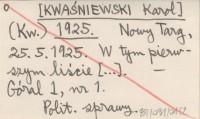 [KWAŚNIEWSKI Karol]
(Kw.) 1925. Nowy Targ,
25.5.1925. W tym pierw-
szym liście [...]. —
Góral 1, nr 1.
Polit. sprawy.